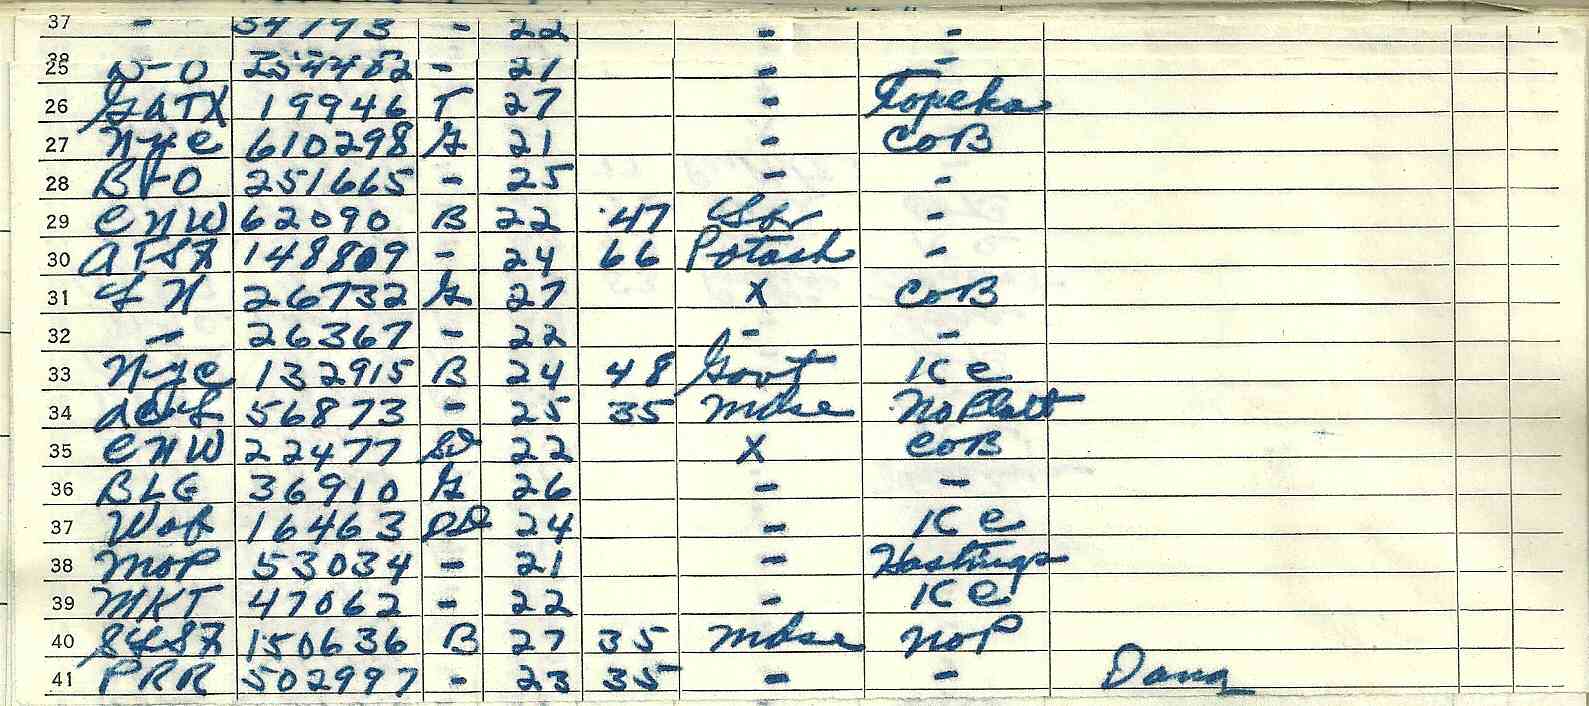 37 - 54793 - 22 - -
25 B-O 254402 - 21 - -
26 GATX 19946 T 27 - Topeka
27 NYC 610298 G 21 - CoB
28 B+O 251665 - 25 - -
29 CNW 62090 B 22 47 -
30 ATSF 148809 - 24 66 Potash -
31 LN 26732 G 27 X CoB
32 - 26367 - 22 - -
33 NYC 132915 B 24 48 Govt KC
34 56873 - 25 35 Mdse No Platt
35 CNW 22477 22 X CoB
36 BLE 36910 G 26 - -
37 Wab 16463 24 - KC
38 MoP 53034 - 21 - Hastings
39 MKT 47062 - 22 - KC
40 SLSF 150636 B 27 35 Mdse NoP
41 PRR 502997 - 23 35 - - Dana